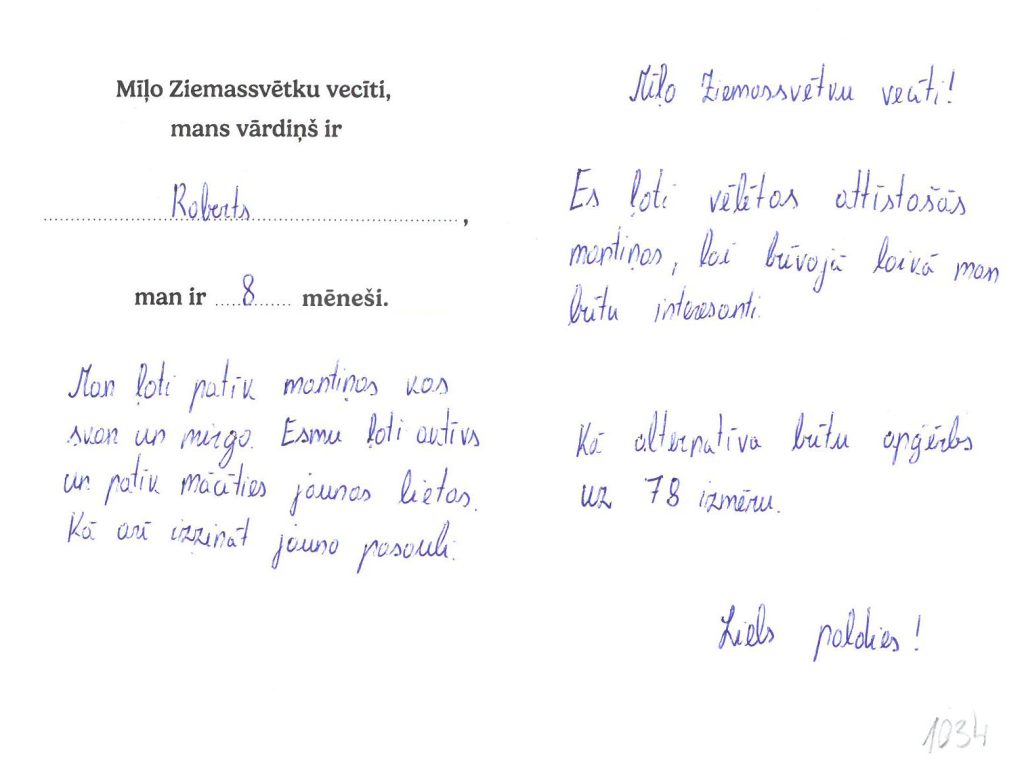 Mīļo Ziemassvētku vecīti,
mans vārdiņš ir
Roberts,
man ir 8 mēneši.
Man ļoti patīk mantiņas kas
skan un mirgo. Esmu ļoti aktīvs
un patīk mācīties jaunas lietas.
Kā arī izzināt jauno pasauli.
Mīļo Ziemassvētku vecīti!
Es ļoti vēlētos attīstošās
mantiņas, lai brīvajā laikā man
būtu interesanti.
Kā alternatīva būtu apģērbs
uz 78 izmēru.
Liels paldies!
1034